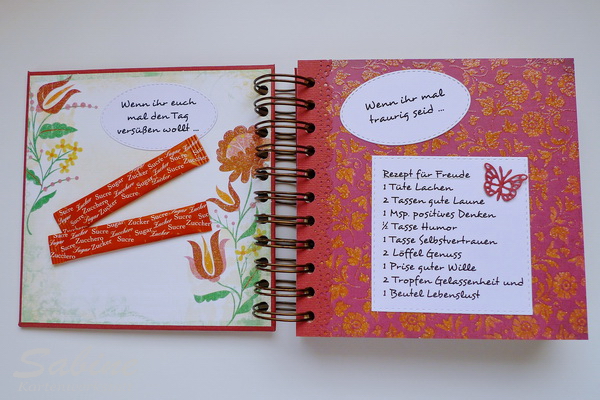 Wenn ihr euch
mal den Tag
versüßen wollt ...
Sucre Zucker Sucre Zucchero Sugar Zucker Sucre
Wenn ihr mal
traurig seid ...
Rezept für Freude
1 Tüte Lachen
2 Tassen gute Laune
1 Msp. positives Denken
½ Tasse Humor
1 Tasse Selbstvertrauen
2 Löffel Genuss
1 Prise guter Wille
2 Tropfen Gelassenheit und
1 Beutel Lebenslust